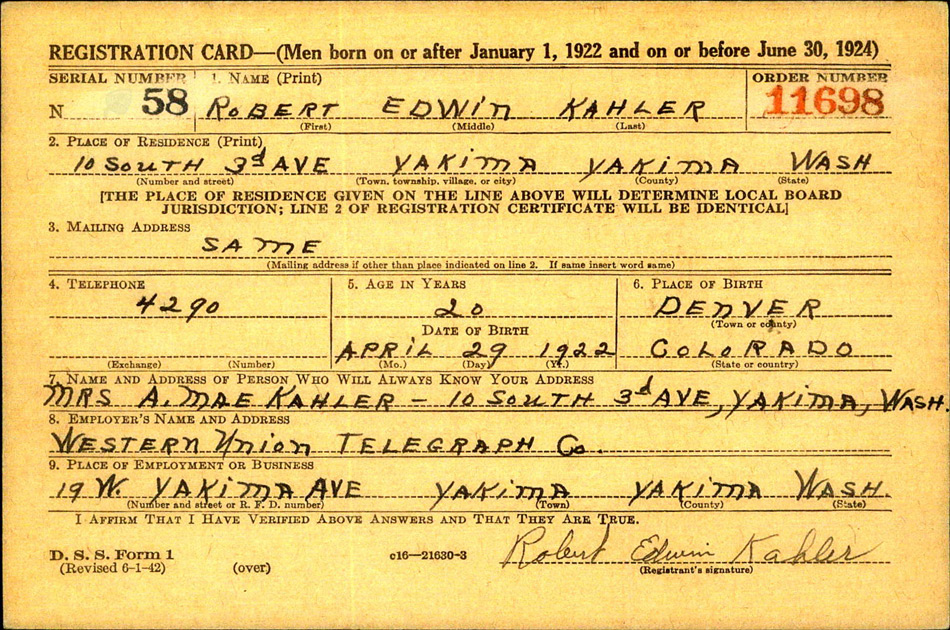 REGISTRATION CARD—(Men born on or after January 1, 1922 and on or before June 30, 1924)
SERIAL NUMBER 1. NAME (Print) ORDER NUMBER
N 58 ROBERT EDWIN KAHLER 11698
(First) (Middle) (Last)
2. PLACE OF RESIDENCE (Print)
10 SOUTH 3d AVE YAKIMA YAKIMA WASH
(Number and street) (Town, township, village, or city) (County) (State)
[THE PLACE OF RESIDENCE GIVEN ON THE LINE ABOVE WILL DETERMINE LOCAL BOARD
JURISDICTION; LINE 2 OF REGISTRATION CERTIFICATE WILL BE IDENTICAL]
3. MAILING ADDRESS
SAME
(Mailing address if other than place indicated on line 2. If same insert word same)
4. TELEPHONE 5. AGE IN YEARS 6. PLACE OF BIRTH
4290 20 DENVER
(Town or county)
DATE OF BIRTH
APRIL 29 1922 COLORADO
(Exchange) (Number) (Mo.) (Day) (Yr.) (State or country)
7. NAME AND ADDRESS OF PERSON WHO WILL ALWAYS KNOW YOUR ADDRESS
MRS A. MAE KAHLER – 10 SOUTH 3d AVE, YAKIMA, WASH.
8. EMPLOYER'S NAME AND ADDRESS
WESTERN UNION TELEGRAPH Co.
9. PLACE OF EMPLOYMENT OR BUSINESS
19 W. YAKIMA AVE YAKIMA YAKIMA WASH.
(Number and street or R. F. D. number) (Town) (County) (State)
I AFFIRM THAT I HAVE VERIFIED ABOVE ANSWERS AND THAT THEY ARE TRUE.
D. S. S. Form 1 c16—21630-3 Robert Edwin Kahler
(Revised 6-1-42) (over) (Registrant's signature)